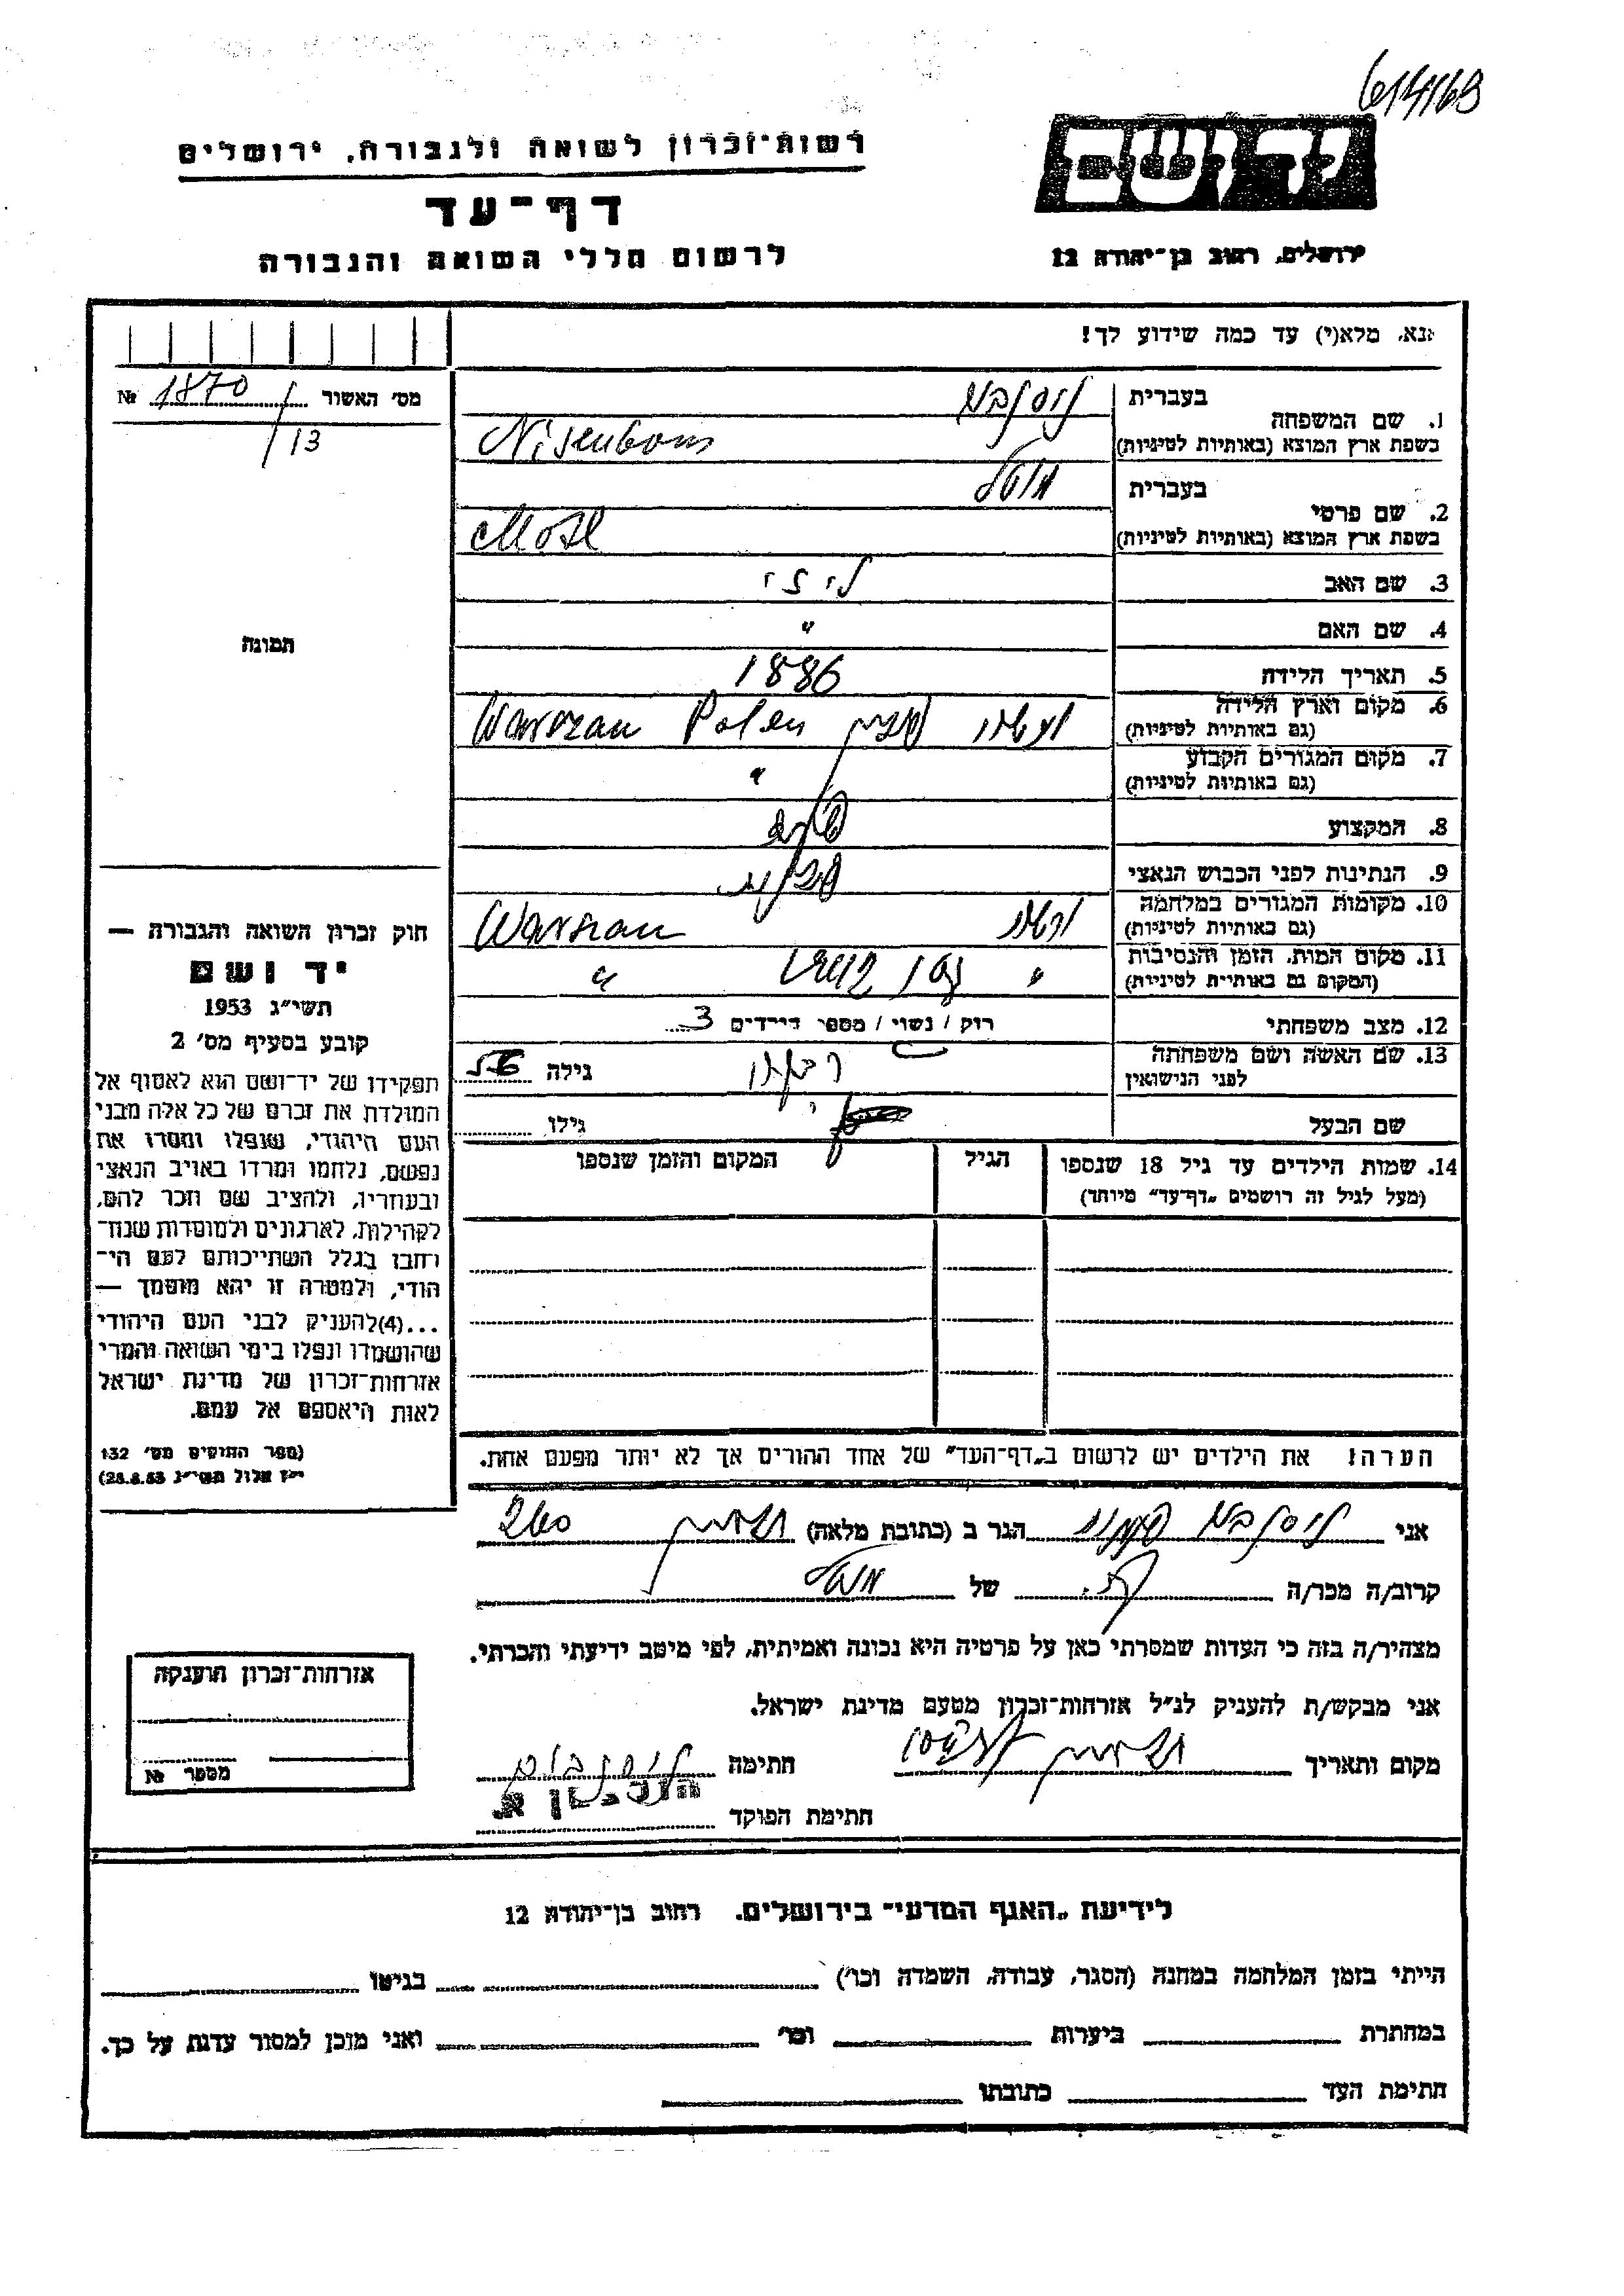 614169
יד ושם
ירושלים, רחוב בן־יהודה 12
רשות־זכרון לשואה ולגבורה, ירושלים
דף־עד
לרשום חללי השואה והגבורה
אנא, מלא(י) עד כמה שידוע לך!
מס׳ האשור 1870 №
13
תמונה
1. שם המשפחה
בעברית ניסנבוים
בשפת ארץ המוצא (באותיות לטיניות) Nisenboum
2. שם פרטי
בעברית מוטל
בשפת ארץ המוצא (באותיות לטיניות) Motl
3. שם האב
4. שם האם "
5. תאריך הלידה 1886
6. מקום וארץ הלידה
(גם באותיות לטיניות) פולין Warszau Polen
7. מקום המגורים הקבוע
(גם באותיות לטיניות) "
8. המקצוע
9. הנתינות לפני הכבוש הנאצי
10. מקומות המגורים במלחמה
(גם באותיות לטיניות) Warszau
11. מקום המות, הזמן והנסיבות
(המקום גם באותיות לטיניות) " "
12. מצב משפחתי רוק / נשוי / מספר הילדים 3
13. שם האשה ושם משפחתה
לפני הנישואין גילה
שם הבעל גילו
14. שמות הילדים עד גיל 18 שנספו
(מעל לגיל זה רושמים „דף־עד״ מיוחד)
הגיל
המקום והזמן שנספו
הערה: את הילדים יש לרשום ב„דף־העד״ של אחד ההורים אך לא יותר מפעם אחת.
חוק זכרון השואה והגבורה —
יד ושם
תשי״ג 1953
קובע בסעיף מס׳ 2
תפקידו של יד־ושם הוא לאסוף אל
המולדת את זכרם של כל אלה מבני
העם היהודי, שנפלו ומסרו את
נפשם, נלחמו ומרדו באויב הנאצי
ובעוזריו, ולהציב שם וזכר להם,
לקהילות, לארגונים ולמוסדות שנח־
רחבו בגלל השתייכותם לעם הי־
הודי, ולמטרה זו יהא מוסמך —
...(4)להעניק לבני העם היהודי
שהושמדו ונפלו בימי השואה והמרי
אזרחות־זכרון של מדינת ישראל
לאות היאספם אל עמם.
(ספר החוקים מס׳ 132
י״ז אלול תשי״ג 28.8.53)
אני ניסנבוים הגר ב (כתובת מלאה)
קרוב/ה מכר/ה של מוטל
מצהיר/ה בזה כי העדות שמסרתי כאן על פרטיה היא נכונה ואמיתית, לפי מיטב ידיעתי והכרתי.
אני מבקש/ת להעניק לנ״ל אזרחות־זכרון מטעם מדינת ישראל.
מקום ותאריך
חתימה ניסנבוים
חתימת הפוקד
אזרחות־זכרון הוענקה
מספר №
לידיעת „האגף המדעי״ בירושלים. רחוב בן־יהודה 12
הייתי בזמן המלחמה במחנה (הסגר, עבודה, השמדה וכו׳) בגיטו
במחתרת ביערות וכו׳ ואני מוכן למסור עדות על כך.
חתימת העד כתובתו